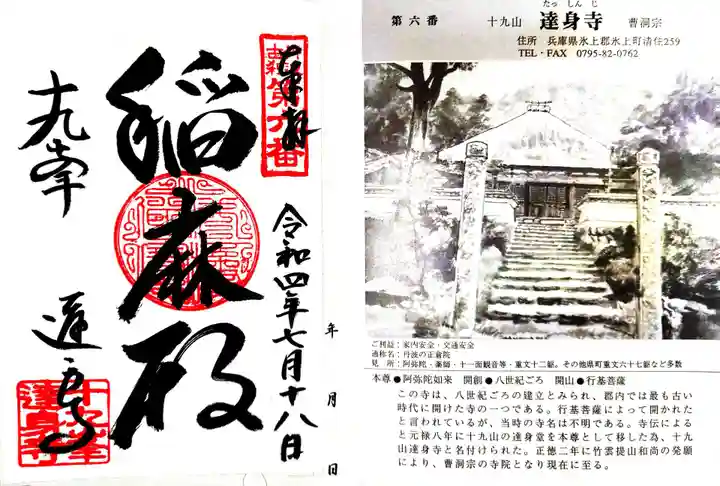 奉拝
第六番
令和四年七月十八日
年 月 日
十九峯
達身寺
第六番 十九山 達身寺 曹洞宗
たっ しん じ
住所 兵庫県氷上郡氷上町清住259
TEL・FAX 0795-82-0762
ご利益：家内安全・交通安全
通称名：丹波の正倉院
見 所：阿弥陀・薬師・十一面観音等・重文十二躯。その他県町重文六十七躯など多数
本尊●阿弥陀如来 開創●八世紀ごろ 開山●行基菩薩
この寺は、八世紀ごろの建立とみられ、郡内では最も古い
時代に開けた寺の一つである。行基菩薩によって開かれた
と言われているが、当時の寺名は不明である。寺伝による
と元禄八年に十九山の達身堂を本尊として移した為、十九
山達身寺と名付けられた。正徳二年に竹雲提山和尚の発願
により、曹洞宗の寺院となり現在に至る。